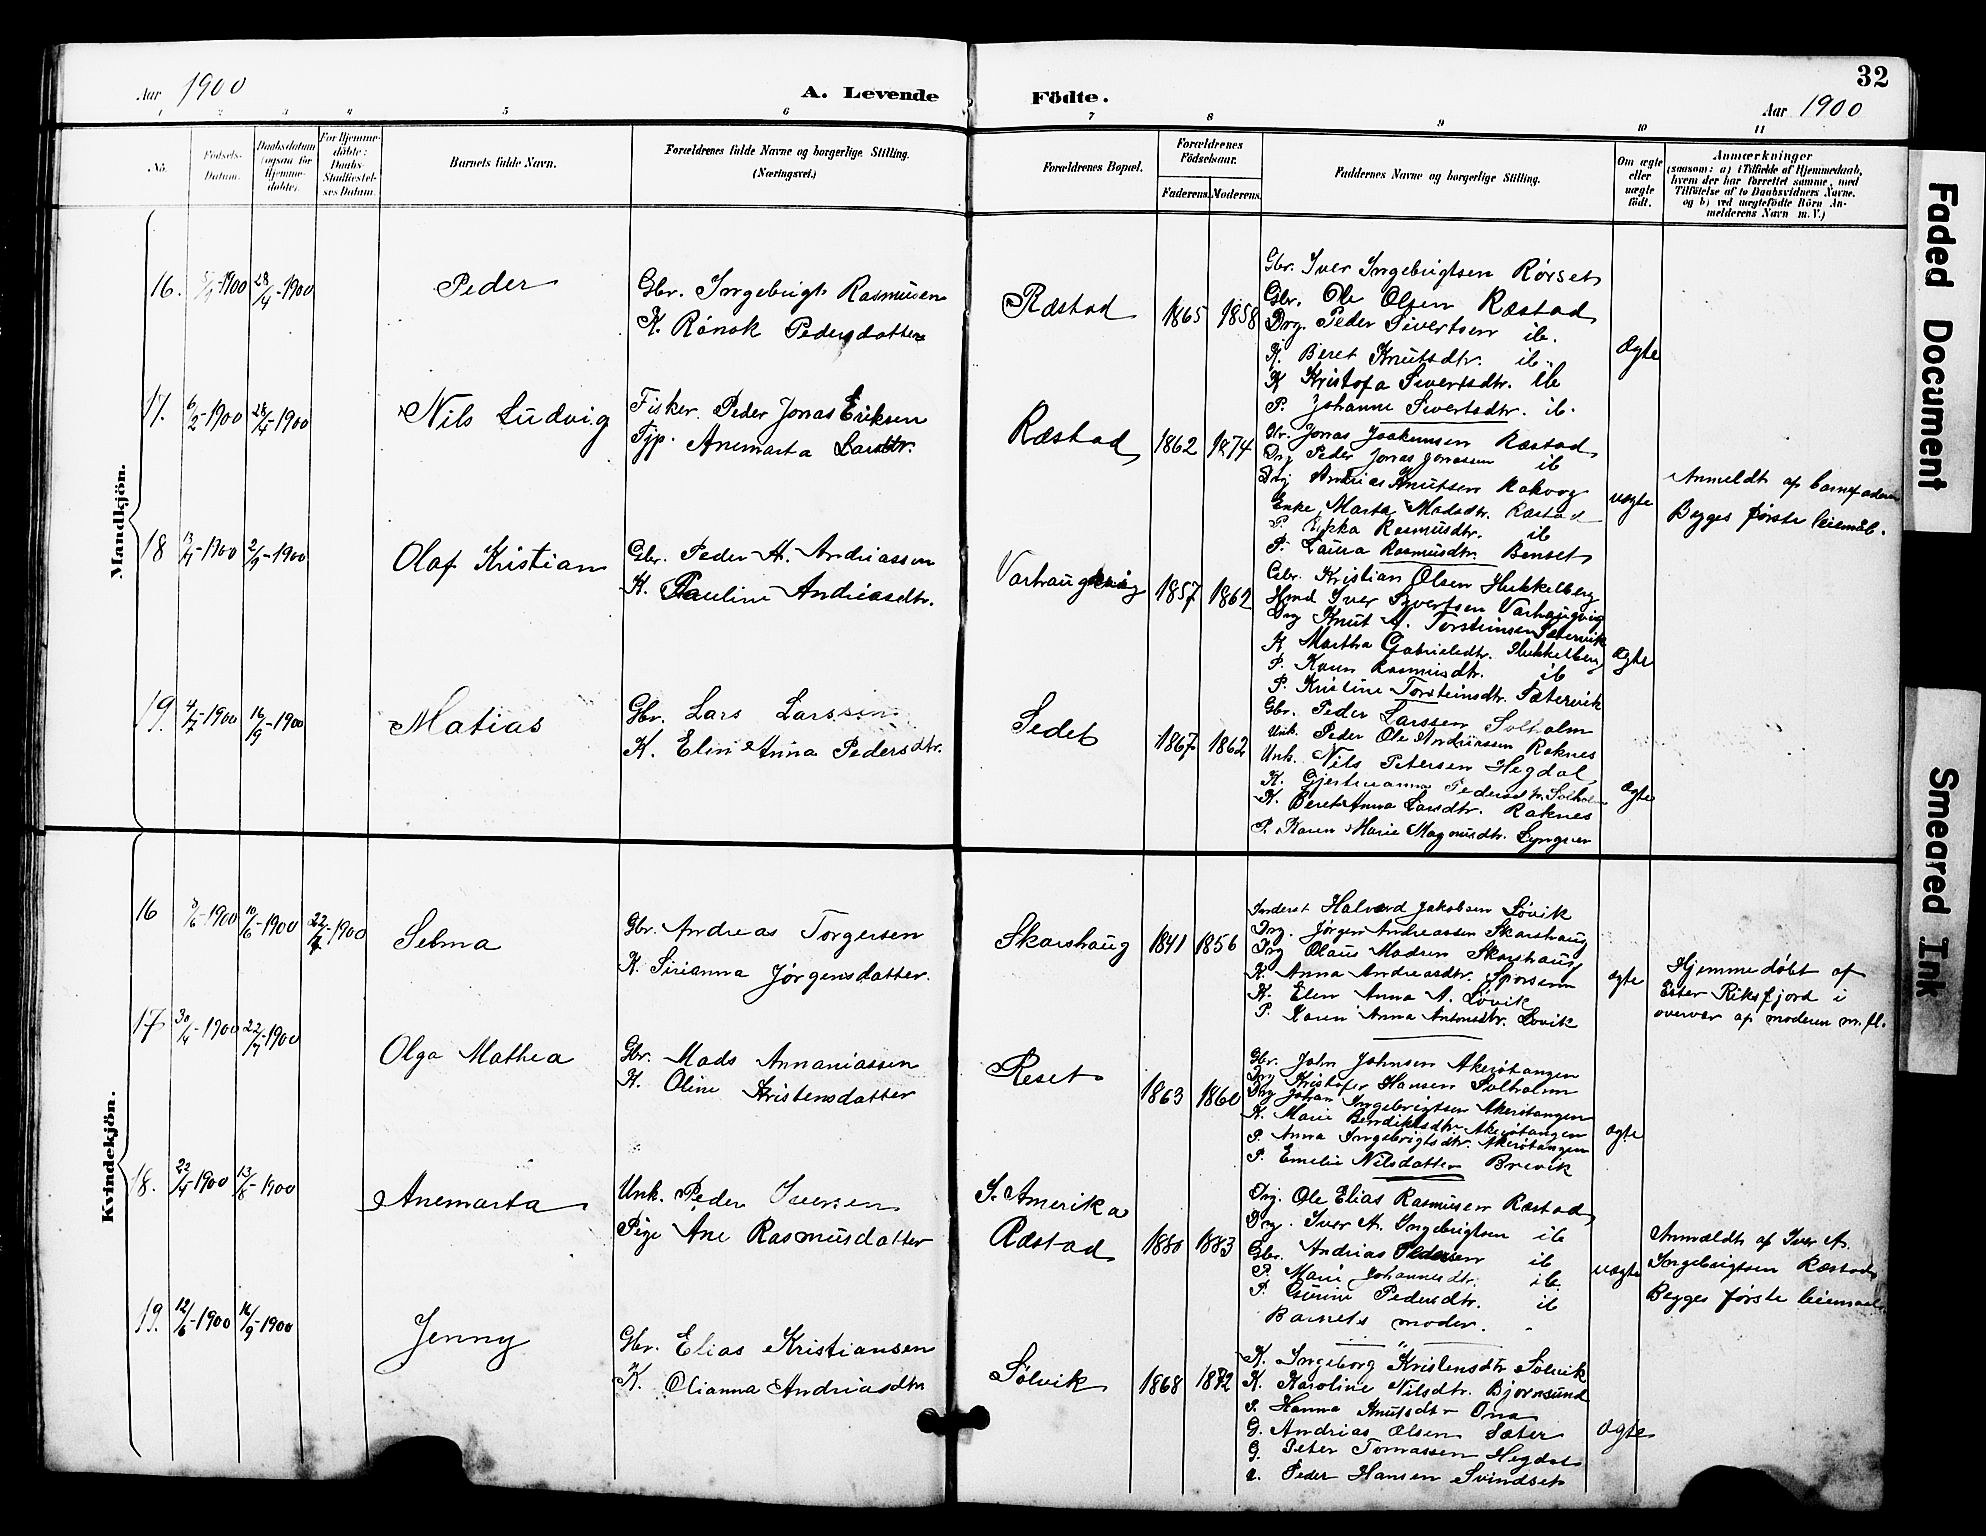 32
Aar 1900
A. Levende Födte.
Aar 1900
1 2 3 4 5 6 7 8 9 10 11
No.
Födsels-Datum.
Daabsdatum (ogsaa for Hjemme-döbte).
For Hjemme-döbte: Daabs-Stadfæstel-ses Datum.
Barnets fulde Navn.
Forældrenes fulde Navne og borgerlige Stilling. (Næringsvei.)
Forældrenes Bopæl.
Forældrenes Födselsaar.
Faderens. Moderens.
Faddernes Navne og borgerlige Stilling.
Om ægte eller uægte født.
Anmærkninger
(saasom: a) i Tilfælde af Hjemmedaab,
hvem der har forrettet samme, med
Tilföielse af to Daabsvidners Navne.
og b) ved uægtefödte Börn An-
melderens Navn m. V.)
Mandkjön.
16. 1900 28/4-1900
Peder
Gbr. Ingebrigt Rasmusen
K. Rønok Pedersdatter
Ræstad
1865 1858
Gbr. Iver Ingebrigtsen Rørset
Gbr. Ole Olsen Ræstad
Drg. Peder Sivertsen ib.
K. Beret Knutsdtr. ib.
K Kristofa Sivertsdtr. ib
P. Johanne Sivertsdtr. ib.
Ægte
17. 6/2-1900 28/4-1900
Nils Ludvig
Fisker. Peder Jonas Eriksen
Tjp. Anemarta Larsdtr.
Ræstad
1862 1874
Gbr. Jonas Joakimsen Ræstad
Drg Peder Jonas Jonassen ib
Drg Andrias Knutsen Rakvog
Enke Marta Madsdtr. Ræstad
P. Rasmusdtr. ib
P. Laura Rasmusdtr. Benset
uægte
Anmeldt af barnefaderen
Begges første leiemål.
18 1900 2/9-1900
Olaf Kristian
Gbr. Peder A. Andriassen
K. Pauline Andriasdtr.
Varhaugvig
1857 1862
Gbr. Kristian Olsen Hukkelberg
Hmd Iver Sivertsen Varhaugvig
Drg Knut A. Torsteinsen Sætervik
K Martha Gabrielsdtr. Hukkelberg
P. Karen Rasmusdtr. ib
P. Kristine Torsteinsdtr. Sætervik
Ægte
19. 1900 16/9-1900
Matias
Gbr. Lars Larssen
K. Elen Anna Pedersdtr.
Sedet
1867 1862
Gbr. Peder Larssen Solholm
Unk. Peder Ole Andriassen Raknes
Unk. Nils Petersen Hegdal
K. Gjertruanna Pedersdtr. Solholm
K. Beret Anna Larsdtr. Raknes
P. Karen Marie Magnusdtr. Lyngvær
Ægte
Kvindekjön.
16 1900 10/6-1900 22/7-1900
Selma
Gbr. Andreas Torgersen
K. Sirianna Jørgensdatter.
Skarshaug
1841 1856
Inderst Halvard Jakobsen Løvik
Drg. Jørgen Andreassen Skarshaug
Drg Olaus Madsen Skarshaug
K. Anna Andreasdtr.
K. Elen Anna A. Løvik
P. Karen Anna Antonsdtr. Løvik
Ægte
Hjemmedøbt af
Ester Riksfjord i
overvær af moderen m. fl.
17 30/4-1900 22/7-1900
Olga Mathea
Gbr. Mads Annaniassen
K. Oline Kristensdatter
Reset
1863 1860
Gbr. John Johnsen Akerøtangen
Drg Kristofer Hansen Solholm
Drg Johan Ingebrigtsen Akerøtangen
K. Marie Bendiktsdtr Akerøtangen
P. Anna Ingebrigtsdtr. Akerøtangen
P. Emelie Nilsdatter Brevik
Ægte
18. 22/4-1900 13/8-1900
Anemarta
Unk. Peder Iversen
Pige Ane Rasmusdatter
I. Amerika
Ræstad
1880 1883
Drg. Ole Elias Rasmusen Ræstad
Drg. Iver A. Ingebrigtsen ib
Gbr. Andrias Pedersen ib
P. Marie Johannesdtr. ib.
P. Gurine Pedersdtr. ib
Barnets moder.
uægte
Anmældt af Iver A.
Ingebrigtsen Ræstad
Begges første leiemaal
19. 12/6-1900 16/9-1900
Jenny
Gbr. Elias Kristiansen
K. Olianna Andriasdtr
Sølvik
1868 1872
K. Ingeborg Kristensdtr Sølvik
K. Karoline Nilsdtr. Bjørnsund
P. Hanna Knutsdtr Ona
G. Andrias Olsen Sæter
G. Peter Tomassen Hegdal
Peder Hansen Svindset
Ægte
Faded Document
Smeared Ink